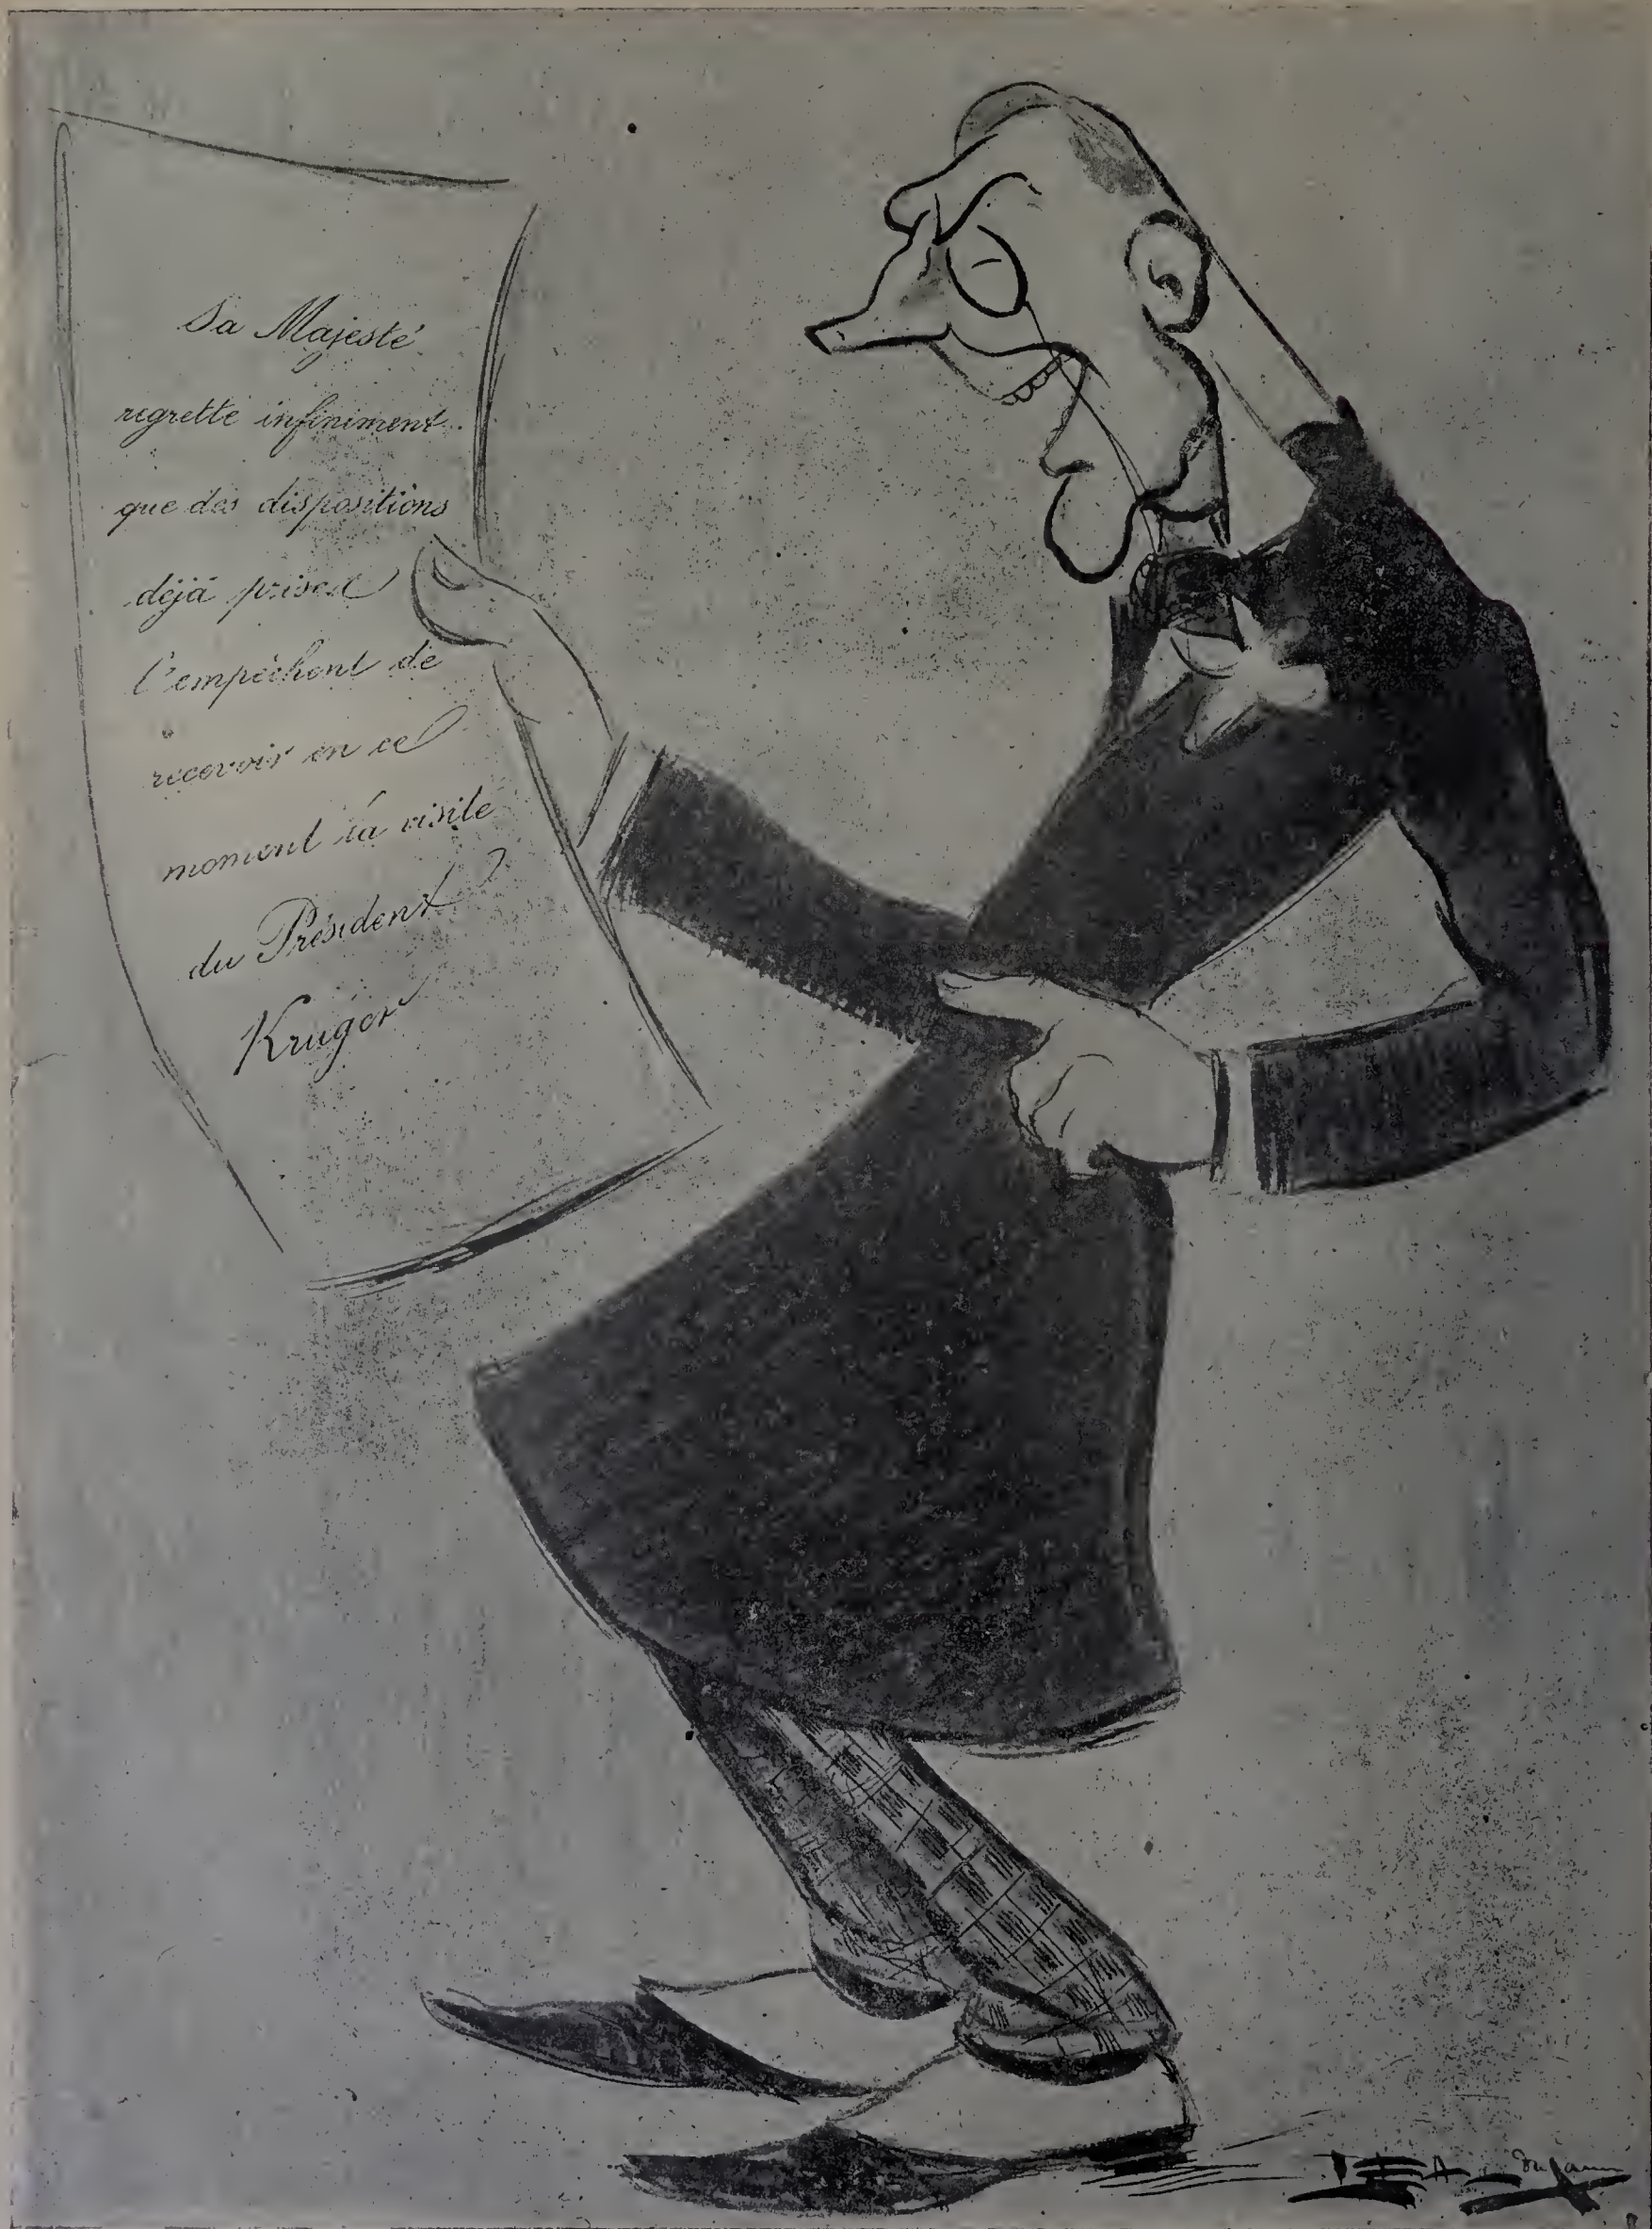 Sa Majesté
regrette infiniment
que des dispositions
déjà prises
l'empêchent de
recevoir en ce
moment la visite
du Président
Krüger